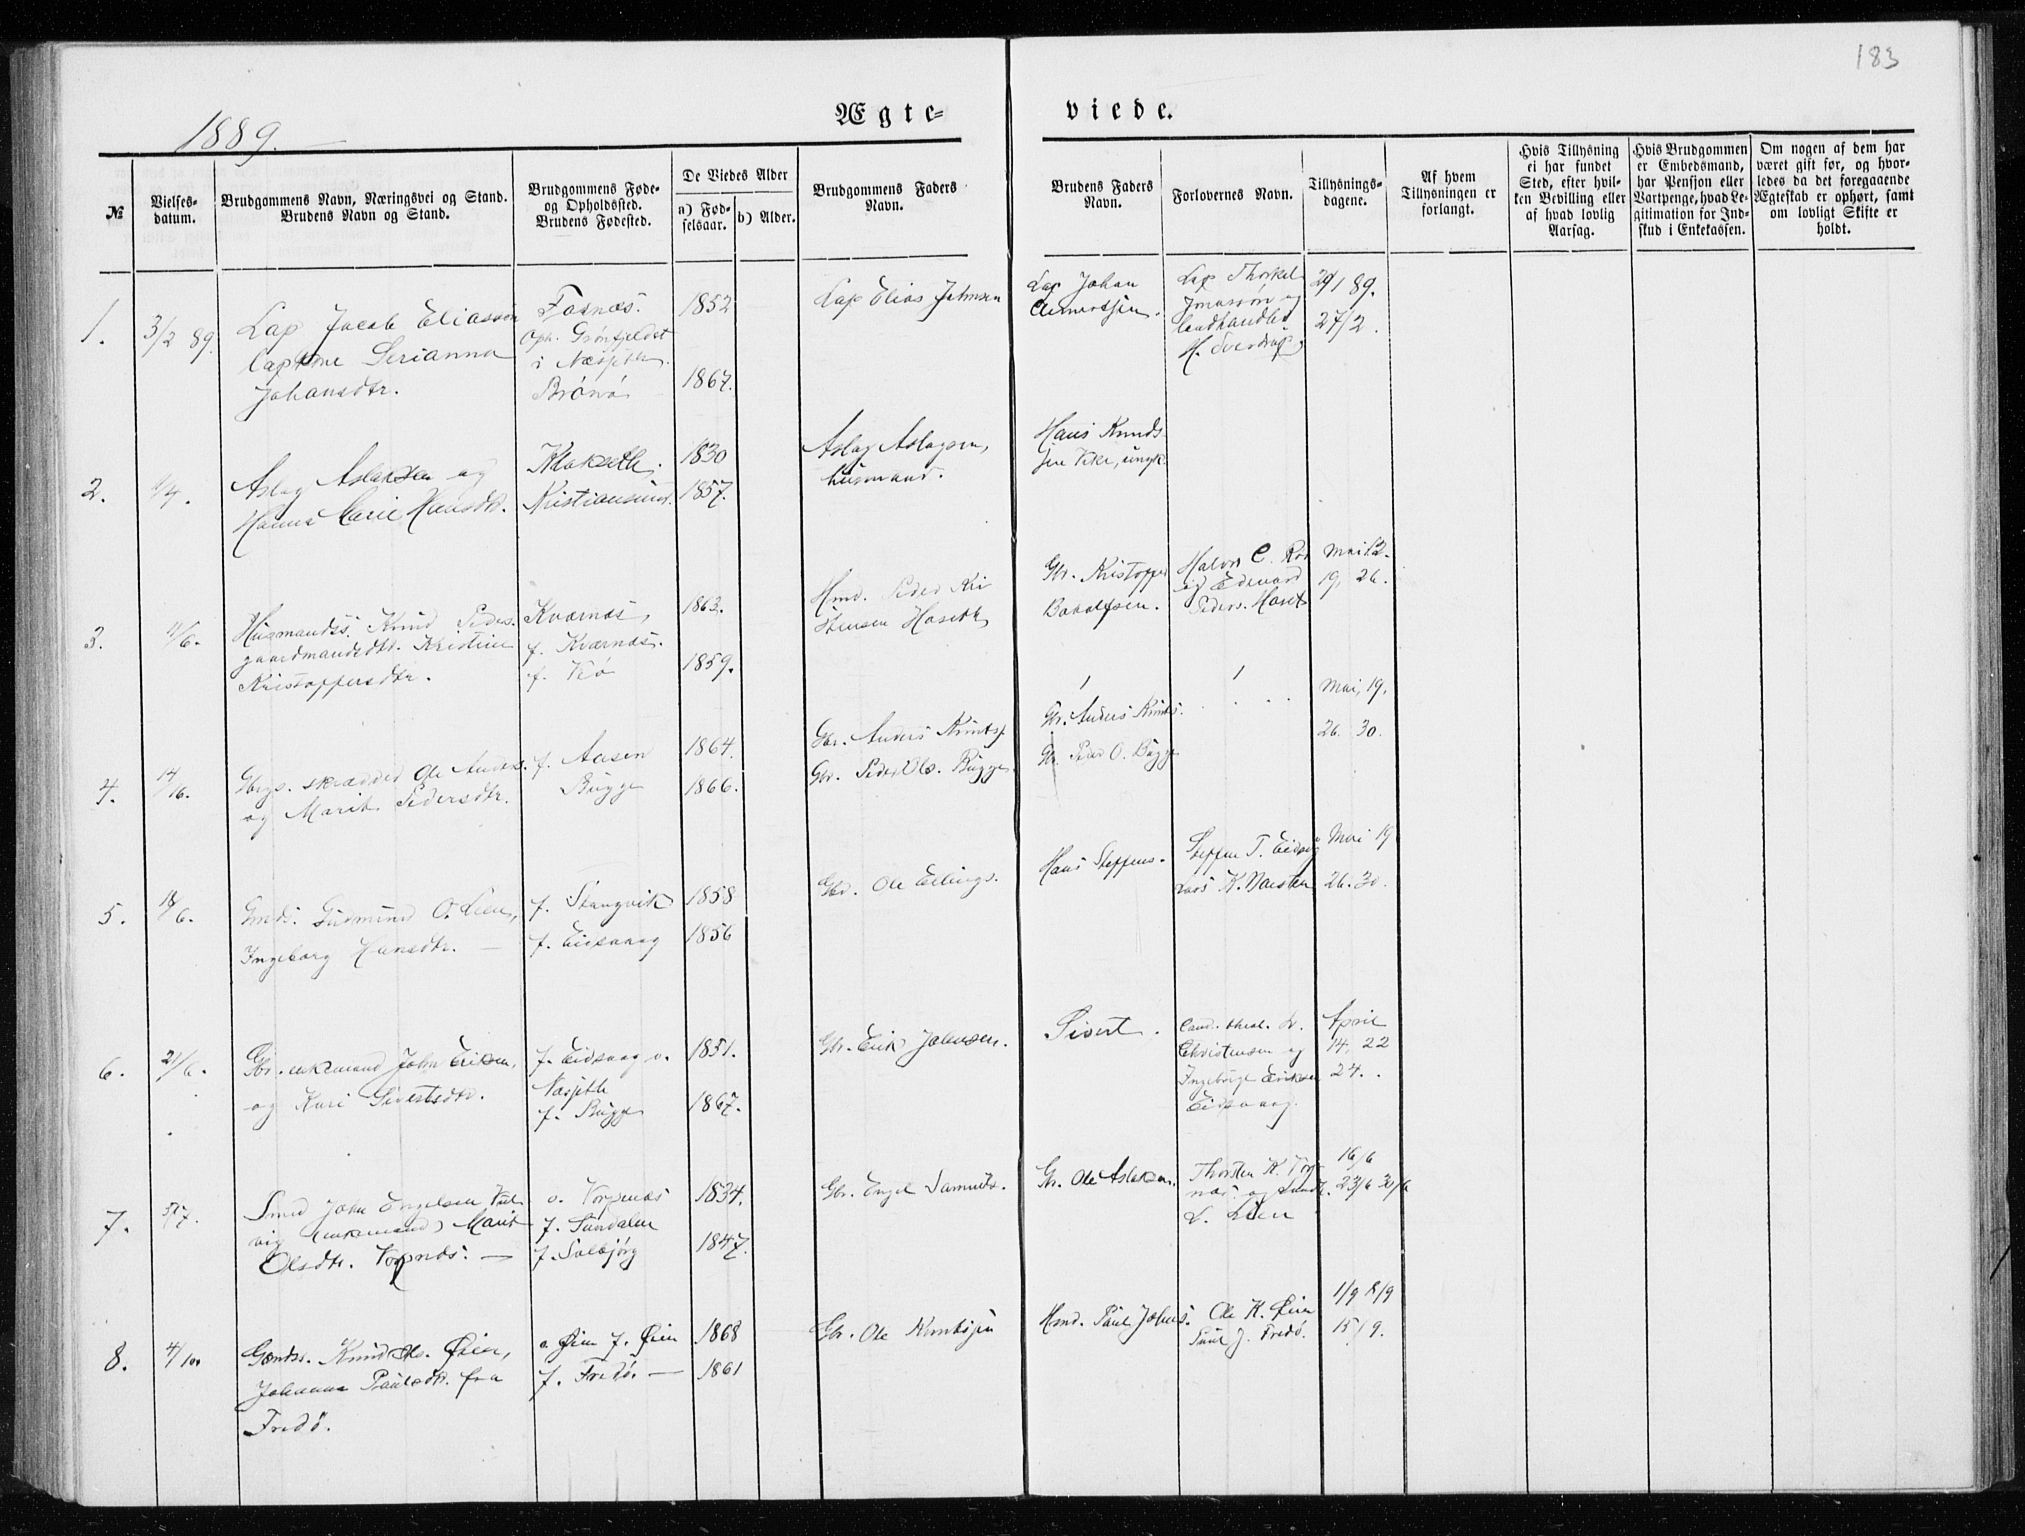 183
1889.
Ægte- viede.
№
Vielses-
datum.
Brudgommens Navn, Næringsvei og Stand.
Brudens Navn og Stand.
Brudgommens Føde-
og Opholdssted.
Brudens Fødested.
De Viedes Alder
a) Fød-
selsaar.
b) Alder.
Brudgommens Faders
Navn.
Brudens Faders
Navn.
Forlovernes Navn.
Tillysnings-
dagene.
Af hvem
Tillysningen er
forlangt.
Hvis Tillysning
ei har fundet
Sted, efter hvil-
ken Bevilling eller
af hvad lovlig
Aarsag.
Hvis Brudgommen
er Embedsmand,
har Pension eller
Vartpenge, hvad Le-
gitimation for Ind-
skud i Enkekassen.
Om nogen af dem har
været gift før, og hvor-
ledes da det foregaaende
Ægteskab er ophørt, samt
om lovligt Skifte er
holdt.
1.
3/2 89.
Lap Jacob Eliassen
Serianna
Johansdtr.
Fosnæs.
Oph. Grønfjeldet
i
Brønø
1852
1867.
Lap Elias Johnsen
Lap Johan
Lap Thorkel
og
landhandler
H. Sverdrup
89.
27/2.
2.
/4.
Aslag Aslaksen og
Hanna Marie Hansdtr.
Kristiansund.
1830
1857.
Aslag Aslagsen,
husmand.
Hans Knuds-
ungk.
3.
/6.
Husmandss. Knud Peders.
gaardmandsdtr. Kristine
Kristoffersdtr.
Kværnæs,
f. Kværnæs.
f.
1863.
1859.
Hmd. Peder Kri
stensen Haseth
Gbr. Kristoffer
Halvor C.
og Edevard
Peders.
Mai 12.
19, 26.
4.
14/6.
skrædder Ole Anders.
og Marit Pedersdtr.
f. Aasen
Bugge
1864.
1866.
Gbr. Anders Knuts.
Gbr. Peder Ols. Bugge.
Gbr. Anders Knuts.
Gbr. Peder O. Bugge
Mai, 19.
26. 30.
5.
18/6.
Gmds. Gudmund O. Lien,
Ingeborg Hansdtr. —
f. Stangvik
f. Eidsvaag
1858
1856
Gbr. Ole Erlings.
Hans Steffens.
Steffen T. Eidsvg
Lars K.
Mai 19
26. 30.
6.
21/6.
Gbr. enkemand John Eriksen,
og Kari Sivertsdtr.
f. Eidsvaag o.
f. Bugge
1851.
1867.
Gbr. Erik Johnsen.
Sivert.
Cand. theol.
Christensen og
Ingebrigt Eriksen
Eidsvaag.
April
14, 22
24.
7.
5/7.
Smed John Engelsen
(enkemand) Marit
Olsdtr. Vorpnæs. —
o. Vorpenæs
f. Sundalen
f. Solbjørg
1834.
1847.
Gbr. Engel
Gbr. Ole Aslaksen.
Thorsten K. Vorp
næs og
L. Lien
16/6
23/6 30/6
8.
4/10.
Knud Ols. Øien,
Johanna Paulsdtr. fra
Fredø.
o. Øien f. Øien
f. Fredø. —
1868
1861
Gbr. Ole Knutsen
Hmd. Paul Johns.
Ole K. Øien
Paul J. Fredø.
1/9 8/9
15/9.